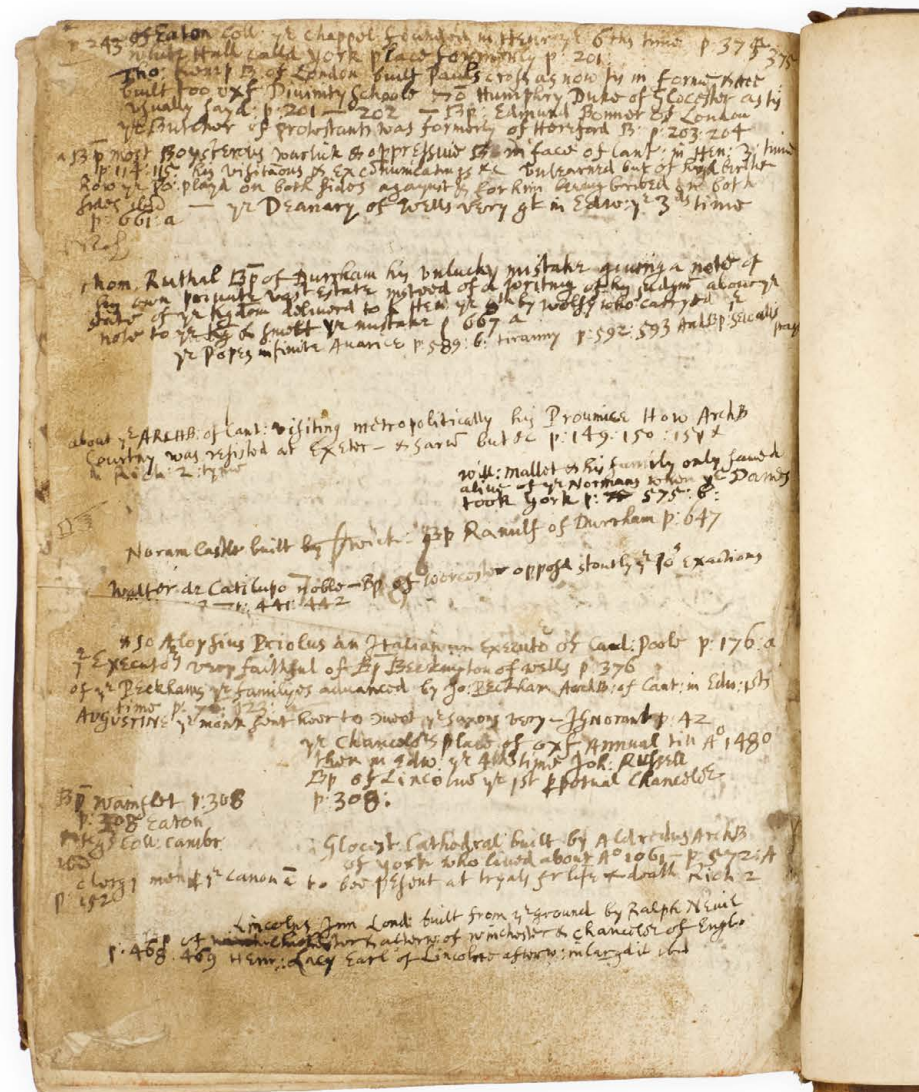 p. 243 of Eaton Coll: yᵉ Chappel founded in Henr: yᵉ 6ths time p. 375
white Hall calld York place formerly p. 201
Tho: Kemp Bp of London built Pauls cross as now tis in forme &
built too oxf Divinity Schoole Humphry Duke of Glocester as tis
usually sayd: p. 201 — 202 — Bp: Edmund Bonner of London
yᵉ Butcher of protestants was formerly of Hereford B: p. 203: 204
a Bp most Boysterous warlick & oppressive in face of Cant: in Hen: 3: time
p: 114: 115: his visitations & Excommunications &c unlearned but of high birthe
How yᵉ Po: playd on both sides against & for him being bribed on both
sides ibid — yᵉ Deanary of Wells very gt in Edw: yᵉ 3ds time
p: 661: a
Thom. Ruthal Bp of Durrham his unlucky mistake giving a note of
his own private vast Estate insteed of a writing of his about yᵉ
state of yᵉ kgdom delivered to k Hen: yᵉ 8th by wolsy who carryed yᵉ
note to yᵉ kg & smelt yᵉ mistake p 667 a
yᵉ Popes infinite Avarice p: 589: 6: tiranny p: 592: 593 and Bp: Sewalls
about yᵉ ARCHB: of Cant: visiting metropolitically his Province How ArchB
Courtny was resisted at Exeter — & Sarum but &c p: 149: 150: 151 &
in Rich: 2: tyme
will: mallet & his family only saved
alive of yᵉ Normans when yᵉ Danes
took York p: 575: 6:
Noram Castle built by Bp Ranulf of Durrham p: 647
Walter de Cantilupo noble — Bp of Worcester opposd stoutly yᵉ Po's Exactions
p: 441: 442
Also Aloysius Priolus an Italian an Executoʳ of Card: Poole p: 176: a
Executoʳs very faithful of Bp Beckington of wells p. 376
of yᵉ Peckhams yᵉ familyes advanced by Jo: Peckham ArchB: of Cant: in Edw: 1sts
time p:
AUGUSTINE yᵉ monk sent heer to yᵉ saxons very — Ignorant p: 42
yᵉ Chancelors place of oxf Annual till A° 1480
then in Edw yᵉ 4ths time Joh: Russell
Bp of Lincolne yᵉ 1st perpetual Chancelor
p: 308:
Bp wainflet p: 308
p: 308 Eaton
Kings Coll: Cambr
ibid
Glocest Cathedral built by Aldredus ArchB
of York who lived about A° 1061 — p: 572: A
Clergy men yᵉ canon to bee present at tryals for life & death Rich 2
p: 152
Lincolns Inn Lond: built from yᵉ ground by Ralph Nevil
Bp of Chichester & afterw: of winchester & chancelor of Engl:
p: 468: 469 Henr: Lacy Earl of Lincolne afterw: inlargd it ibid